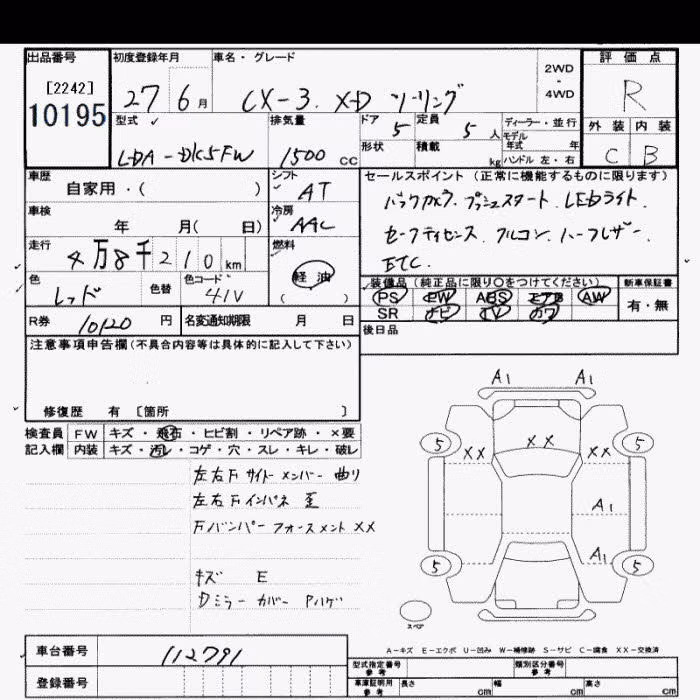 出品番号 初度登録年月 車名・グレード 2WD - 4WD 評価点
[2242] 10195 27 6月 CX-3 XD ツーリング R
型式 排気量 ドア 定員 ディーラー・並行 外装 内装
LDA-DK5FW 1500 CC 5 5人 モデル年式 年 C B
形状 積載 kg ハンドル 左・右
車歴 シフト セールスポイント(正常に機能するものに限ります)
自家用・( ) AT バックカメラ. プッシュスタート. LEDライト.
車検 年 月( 日) 冷房 AAC
セーフティセンス. アルコン. ハーフレザー.
走行 4万8千210km 燃料 軽油 ( ) ETC.
色 レッド 色替 色コード 41V
装備品(純正品に限り○をつけてください) 新車保証書
PS PW ABS エアB AW 有・無
SR ナビ TV カワ
R券 10120円 名変通知期限 月 日 後日品
注意事項申告欄(不具合内容等は具体的に記入して下さい)
修復歴 有 [箇所 ]
検査員 FW キズ・飛石・ヒビ割・リペア跡・×要
記入欄 内装 キズ・汚レ・コゲ・穴・スレ・キレ・破レ
左右Fサイドメンバー 曲り
左右Fインパネ 歪
Fバンパーフォースメント XX
キズ E
Dミラーカバー Pハゲ
A1 A1
5 XX XX XX 5
A1
5 A1 5
スペア
A-キズ E-エクボ U-凹み W-補修跡 S-サビ C-腐食 XX-交換済
車台番号 112791 型式指定番号 参考 類別区分番号 参考
登録番号 車庫証明用 参考 長さ cm 幅 cm 高さ cm